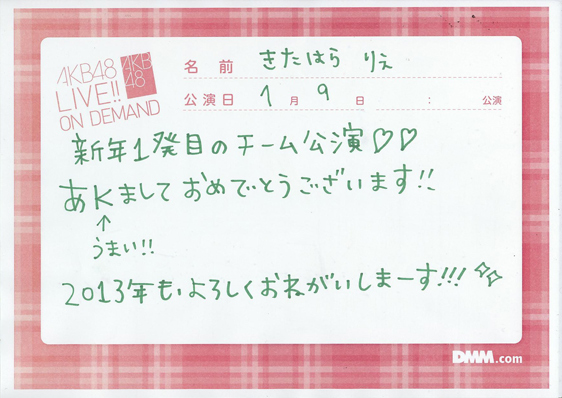 AKB48
LIVE!!
ON DEMAND
AKB
48
名前 きたはら りえ
公演日 1月9日 : 公演
新年1発目のチーム公演♡♡
あKまして おめでとうございます!!
↑
うまい!!
2013年も、よろしくおねがいしまーす!!!
DMM.com